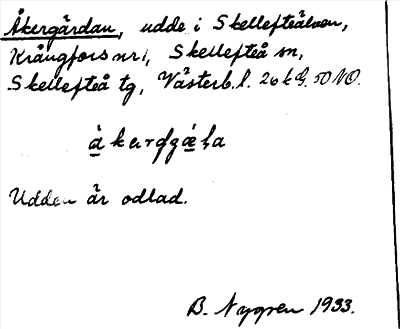 Åkergårdan, udde i Skellefteälven,
Krångfors nr 1, Skellefteå sn,
Skellefteå tg, Västerb. l. 20 k G. 50 NO.
Udden är odlad.
B. Nygren 1933.